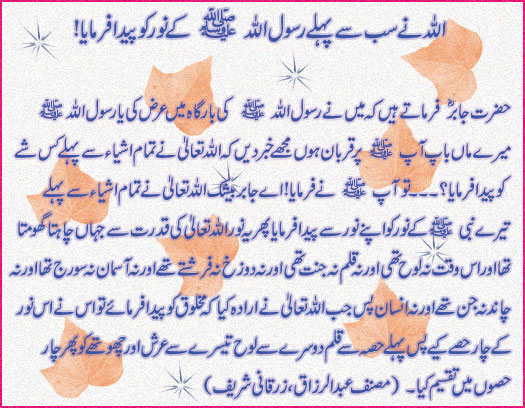 اللہ نے سب سے پہلے رسول اللہ ﷺ کے نور کو پیدا فرمایا!
حضرت جابرؓ فرماتے ہیں کہ میں نے رسول اللہ ﷺ کی بارگاہ میں عرض کی یا رسول اللہ ﷺ
میرے ماں باپ آپ ﷺ پر قربان ہوں مجھے خبر دیں کہ اللہ تعالیٰ نے تمام اشیاء سے پہلے کس شے
کو پیدا فرمایا؟۔۔۔ تو آپ ﷺ نے فرمایا! اے جابر بیشک اللہ تعالیٰ نے تمام اشیاء سے پہلے
تیرے نبی ﷺ کے نور کو اپنے نور سے پیدا فرمایا پھر یہ نور اللہ تعالیٰ کی قدرت سے جہاں چاہتا گھومتا
تھا اور اس وقت نہ لوح تھی اور نہ قلم نہ جنت تھی اور نہ دوزخ نہ فرشتے تھے اور نہ آسمان نہ سورج تھا اور نہ
چاند نہ جن تھے اور نہ انسان پس جب اللہ تعالیٰ نے ارادہ کیا کہ مخلوق کو پیدا فرمائے تو اس نے اس نور
کے چار حصے کیے پس پہلے حصہ سے قلم دوسرے سے لوح تیسرے سے عرش اور چھوتھے کو پھر چار
حصوں میں تقسیم کیا۔ (مصنف عبدالرزاق، زرقانی شریف)